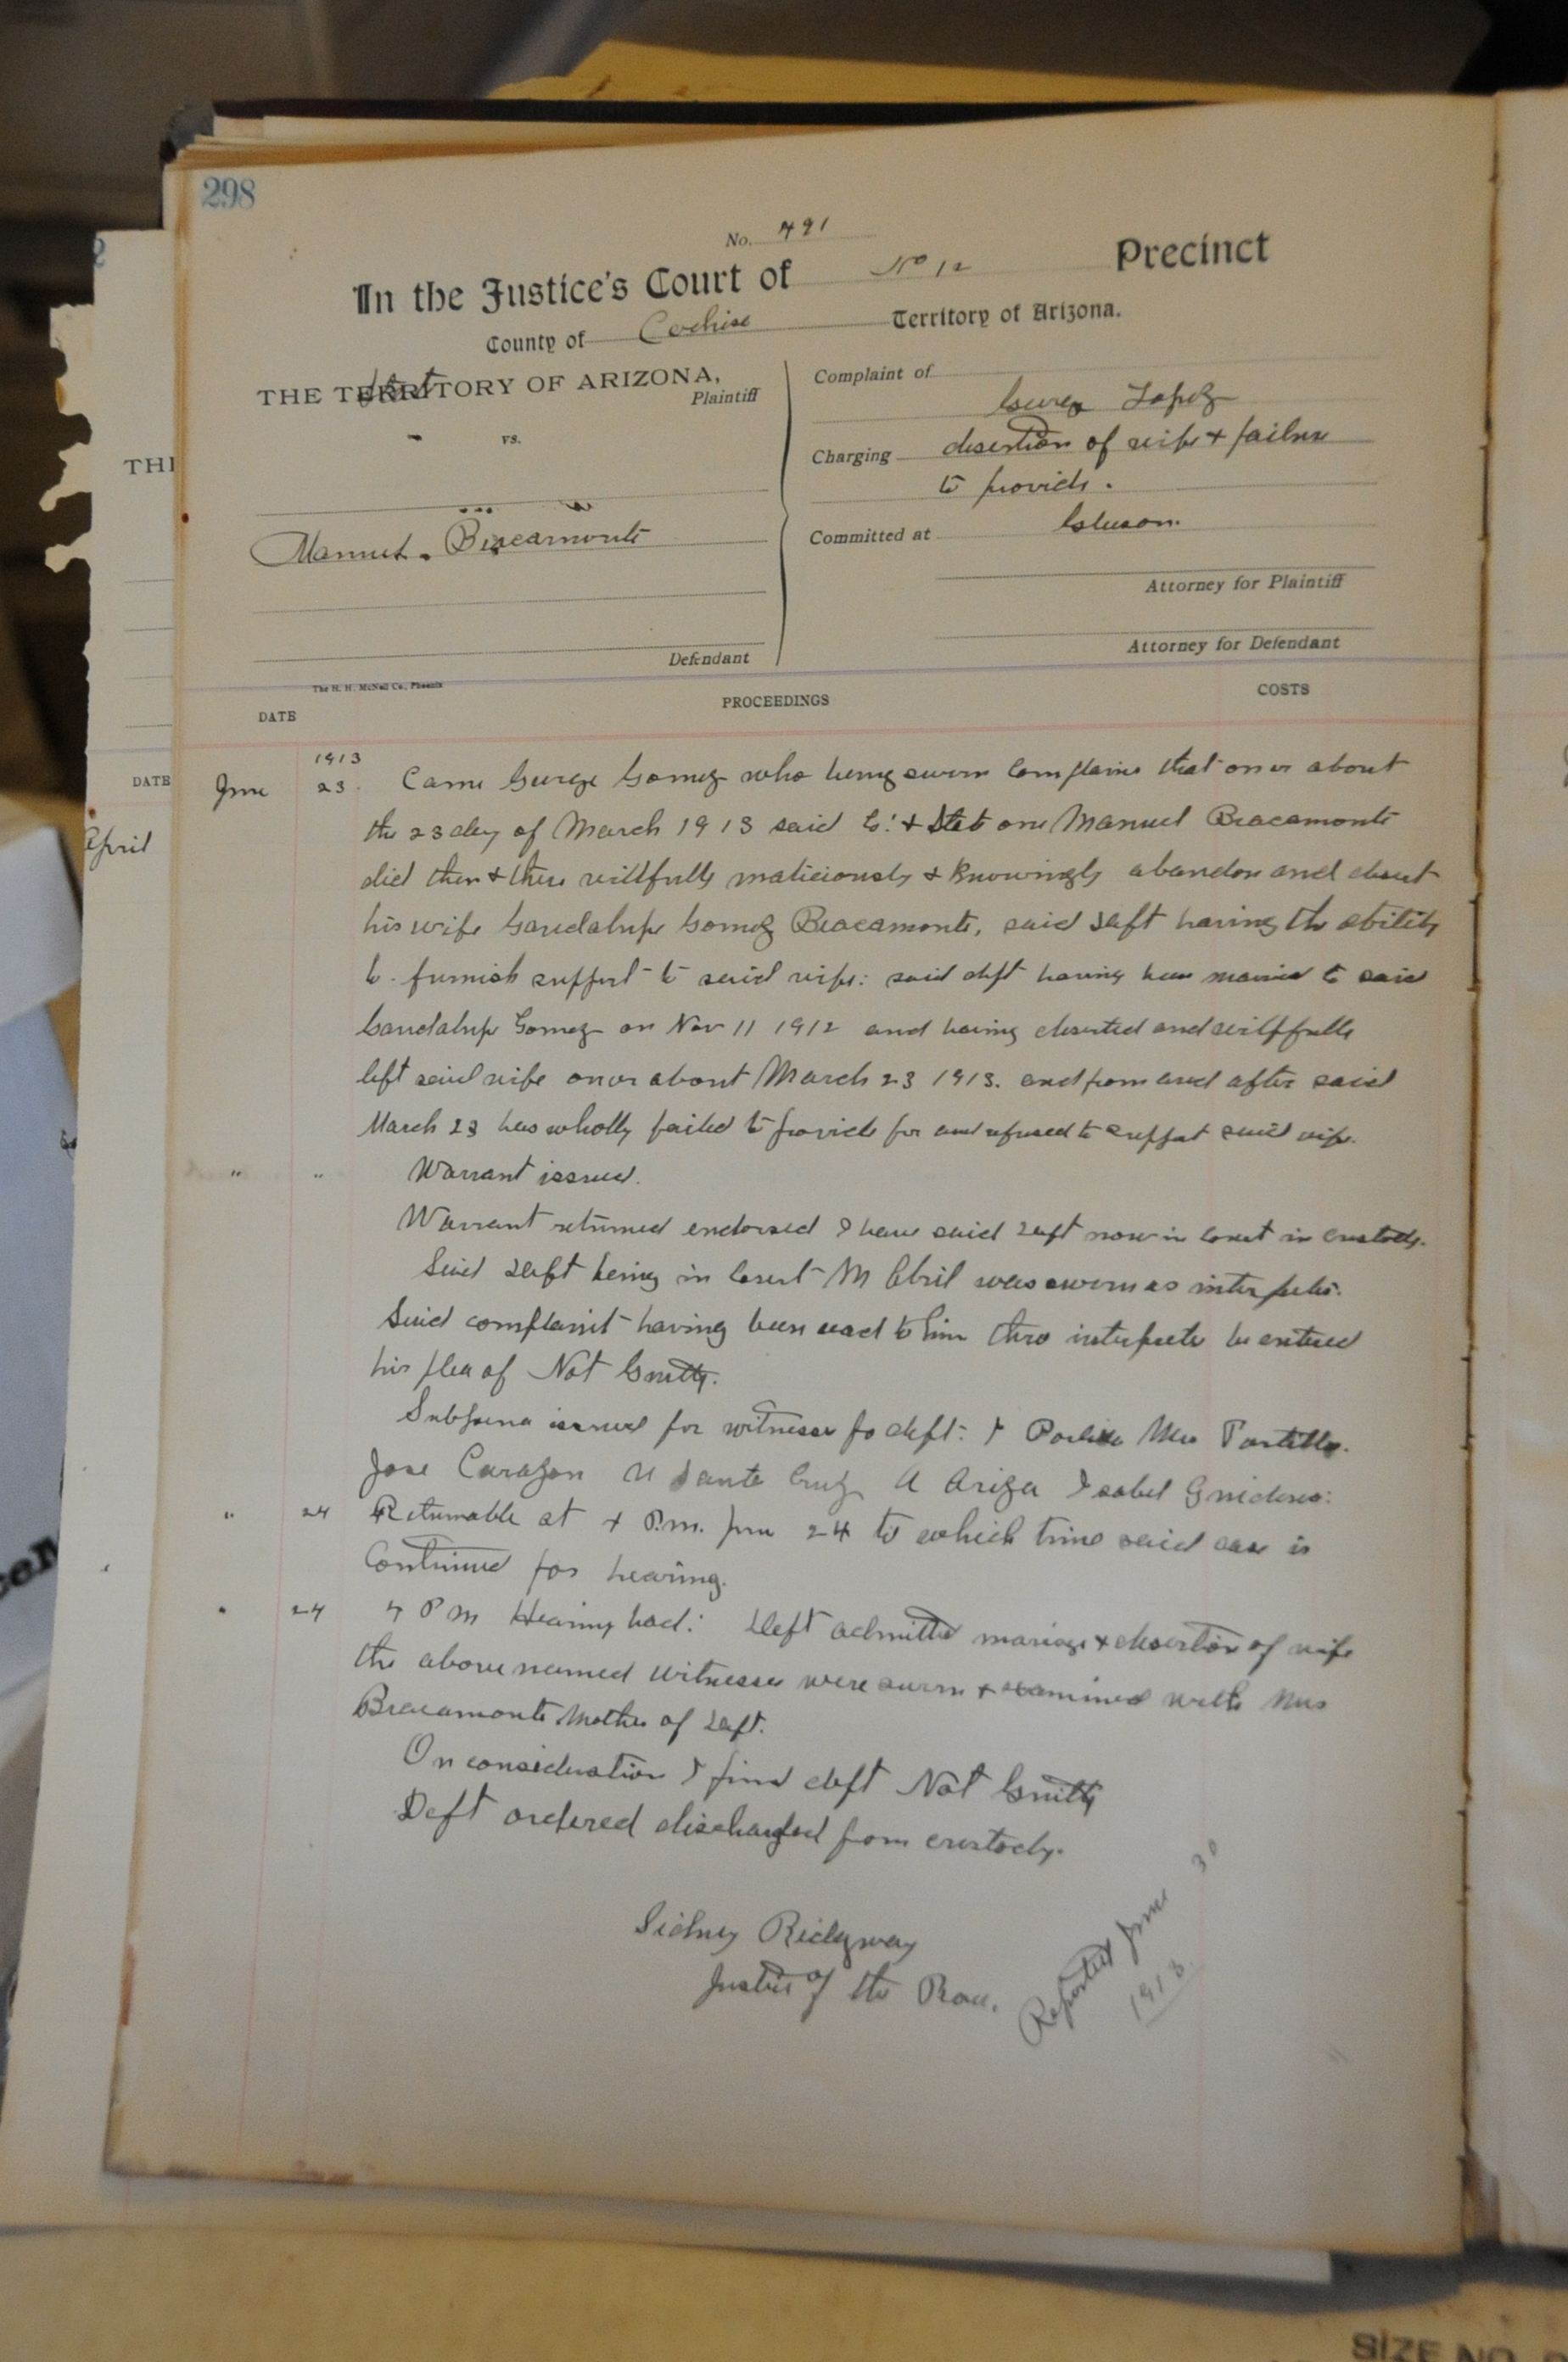 298
No. 491
In the Justice's Court of No 12 Precinct
County of Cochise Territory of Arizona.
THE TERRITORY OF ARIZONA,
State
Plaintiff
vs.
Manuel Bracamonte
Defendant
Complaint of
George Lopez
Charging desertion of wife & failure
to provide.
Committed at Gleeson.
Attorney for Plaintiff
Attorney for Defendant
The H. H. McNeil Co., Phoenix
DATE PROCEEDINGS COSTS
1913
June 23. Came George Gomez who being sworn complains that on or about
the 23 day of March 1913 said Co: & State one Manuel Bracamonte
did then & there willfully maliciously & knowingly abandon and desert
his wife Gaudalupe Gomez Bracamonte, said Deft having the ability
to furnish support to said wife: said deft having been married to said
Gaudalupe Gomez on Nov 11 1912 and having deserted and willfully
left said wife on or about March 23 1913. and from and after said
March 23 has wholly failed to provide for and refused to support said wife.
" " Warrant issued.
Warrant returned endorsed I have said Deft now in Court in custody.
Said Deft being in Court M Abril was sworn as interpreter.
Said complaint having been read to him thro interpreter he entered
his plea of Not Guilty.
Subpoena issued for witnesses fo deft: Mrs Portillo.
Jose Carazon N Santa Cruz A Ariza Isabel
" 24 Returnable at 4 P.m. June 24 to which time said case is
Continued for hearing.
" 24 4 P M Hearing had: Deft admitted mariage & desertion of wife
the above named witnesses were sworn & examined with Mrs
Bracamonte Mother of Deft.
On consideration I find deft Not Guilty
Deft ordered discharged from custody.
Sidney Ridgway
Justice of the Peace.
Reported June 30
1913.
THE
DATE
April
SIZE NO.